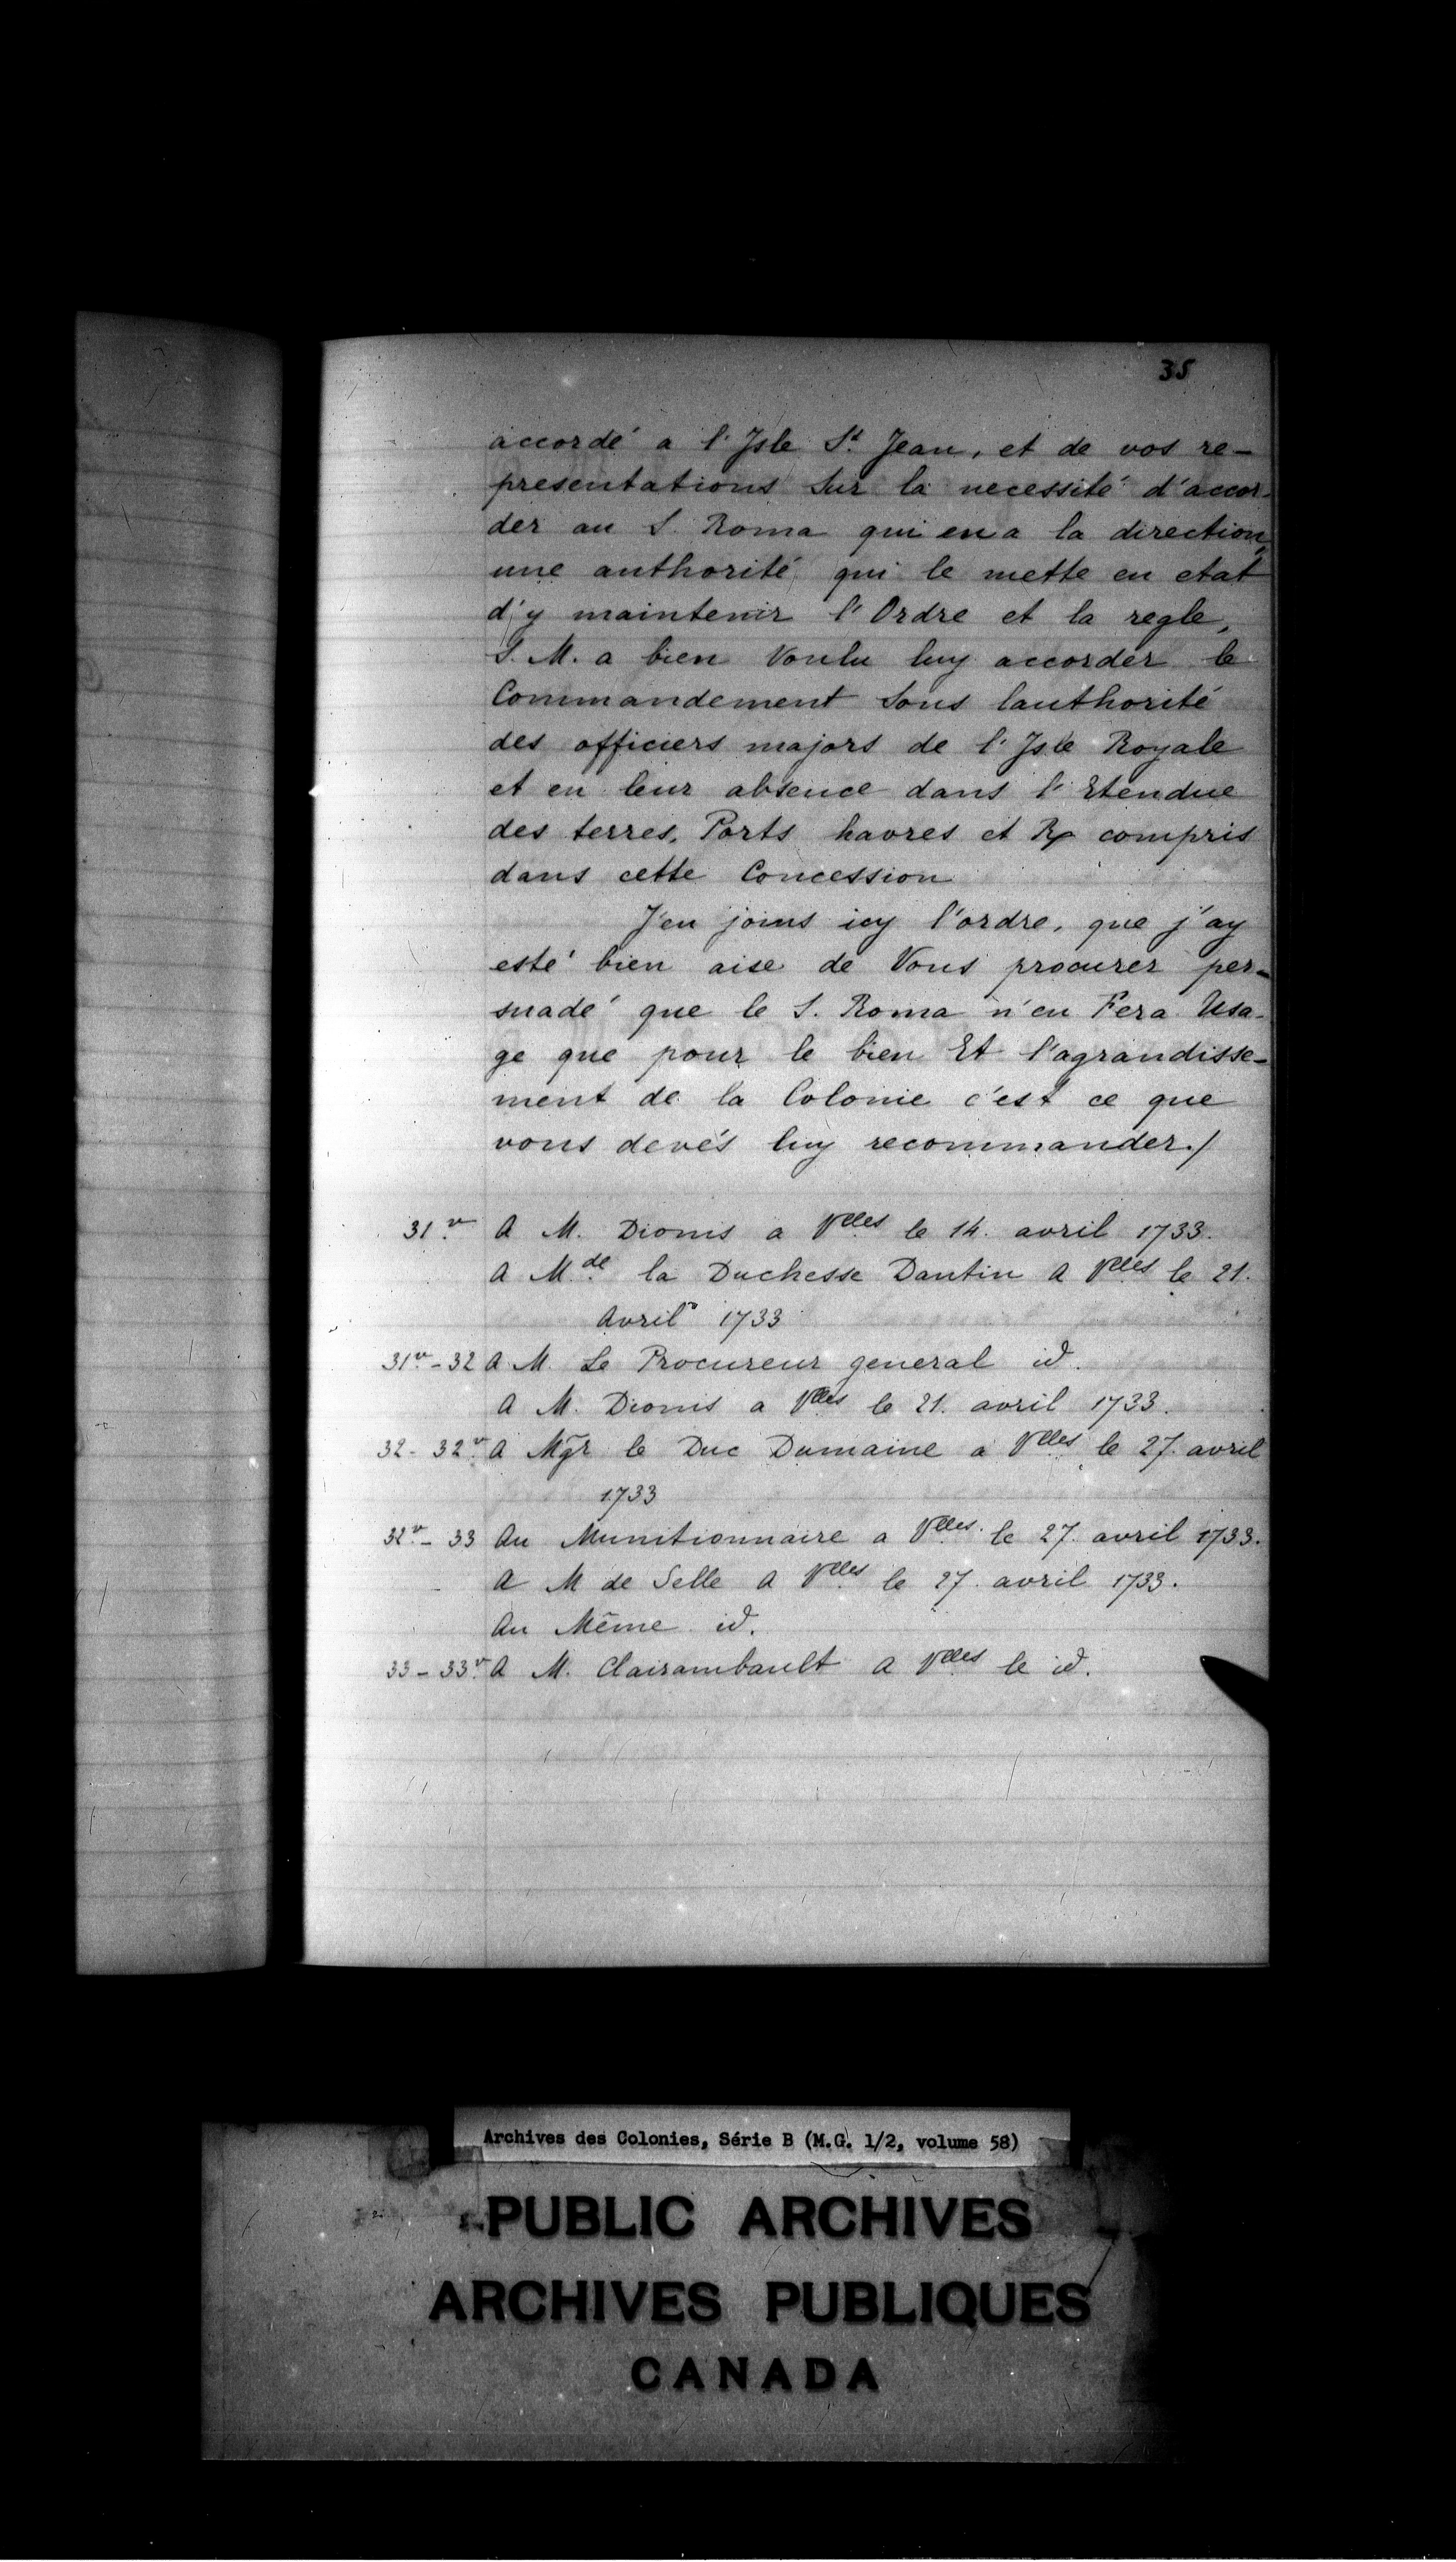 35
accordé a l'Isle St. Jean, et de vos re-
presentations sur la necessité d'accor-
der au S. Roma qui en a la direction,
une authorité qui le mette en etat
d'y maintenir l'Ordre et la regle,
S. M. a bien Voulu luy accorder le
Commandement Sous lauthorité
des officiers majors de l'Isle Royale
et en leur absence dans l'Etendue
des terres, Ports havres et Rs compris
dans cette Concession
J'en joins icy l'ordre, que j'ay
esté bien aise de Vous procurer per-
suadé que le S. Roma n'en Fera Usa-
ge que pour le bien Et l'agrandisse-
ment de la Colonie c'est ce que
vous devés luy recommander./
31.v A M. Dionis a Vlles le 14. avril 1733.
A M.de la Duchesse Dantin A Vlles le 21.
Avril 1733
31v - 32 A M. Le Procureur general id.
A M. Dionis a Vlles le 21. avril 1733.
32 - 32v. A Mgr le Duc Dumaine a Vlles le 27. avril
1733
32v. - 33 Au Munitionnaire a Vlles. le 27. avril 1733.
A M de Selle A Vlles le 27. avril 1733.
Au Même id.
33 - 33v. A M. Clairambault A Vlles le id.
Archives des Colonies, Série B (M.G. 1/2, volume 58)
PUBLIC ARCHIVES
ARCHIVES PUBLIQUES
CANADA